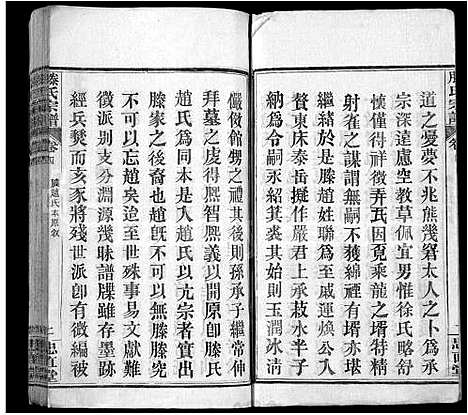 滕氏宗譜 卷
道之憂夢不兆熊幾窘太人之卜為承
宗深遠慮空教草佩宜男徐氏略舒
僅得祥徵弄瓦因思之壻特精
射雀之謀謂無嗣不獲有壻堪
繼緒於是趙大始聯為至戚運煥公入
贅東床泰岳擬作嚴君上承菽水半子
納為令嗣永紹箕裘其始則玉潤冰清
二 忠直堂
儼儆館甥之禮其後則孫承子繼常伸
拜墓之虔得熙智熙義以開即滕氏
趙氏為同本是人以亢宗者實
滕家之後裔也趙而不以無滕究
不以忘趙矣第至世殊事易文獻難
徵支分淵源幾昧牒雖存墨跡
經兵燹而亥豕將殘世派即有徵編被
滕氏宗譜 卷四 滕趙氏本源敘 二 忠直堂